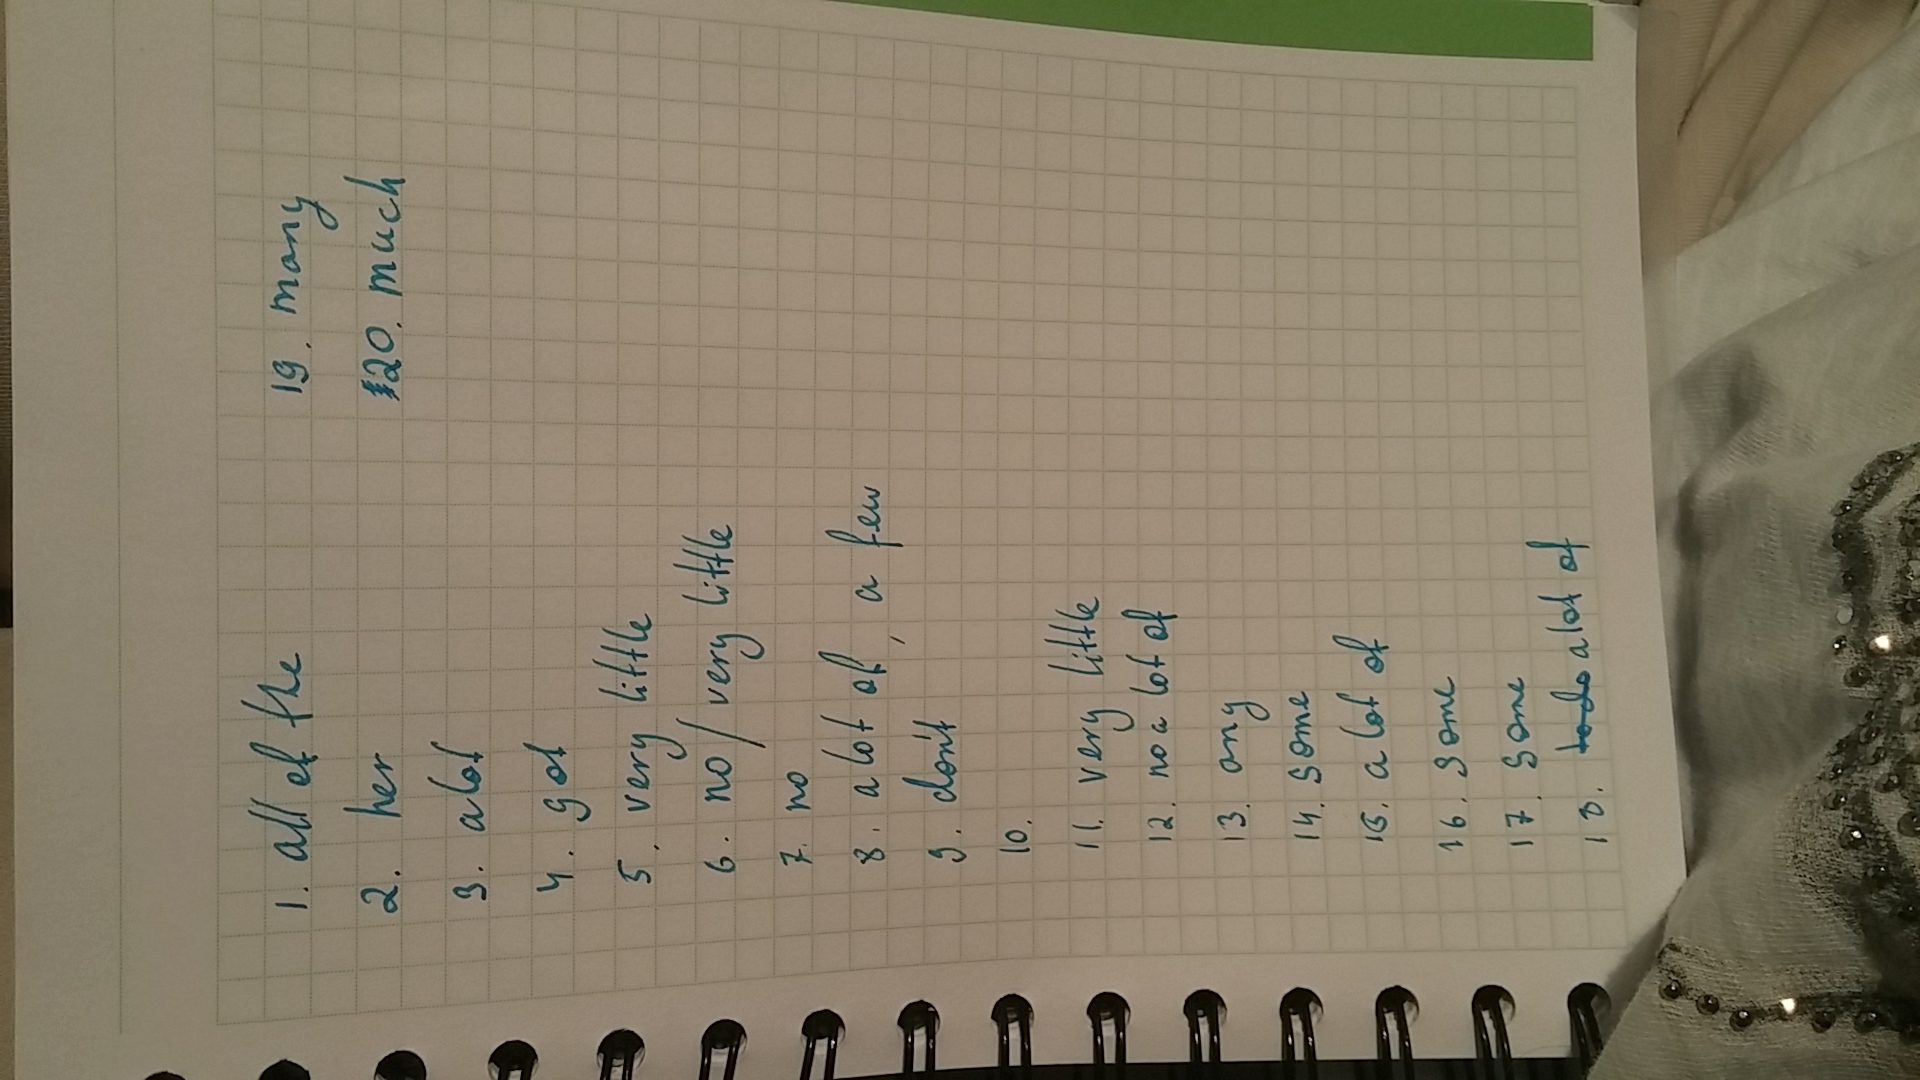 1. all of the
2. her
3. a lot
4. got
5. very little
6. no / very little
7. no
8. a lot of, a few
9. don't
10.
11. very little
12. no a lot of
13. any
14. some
15. a lot of
16. some
17. some
18. a lot of
19. many
20. much